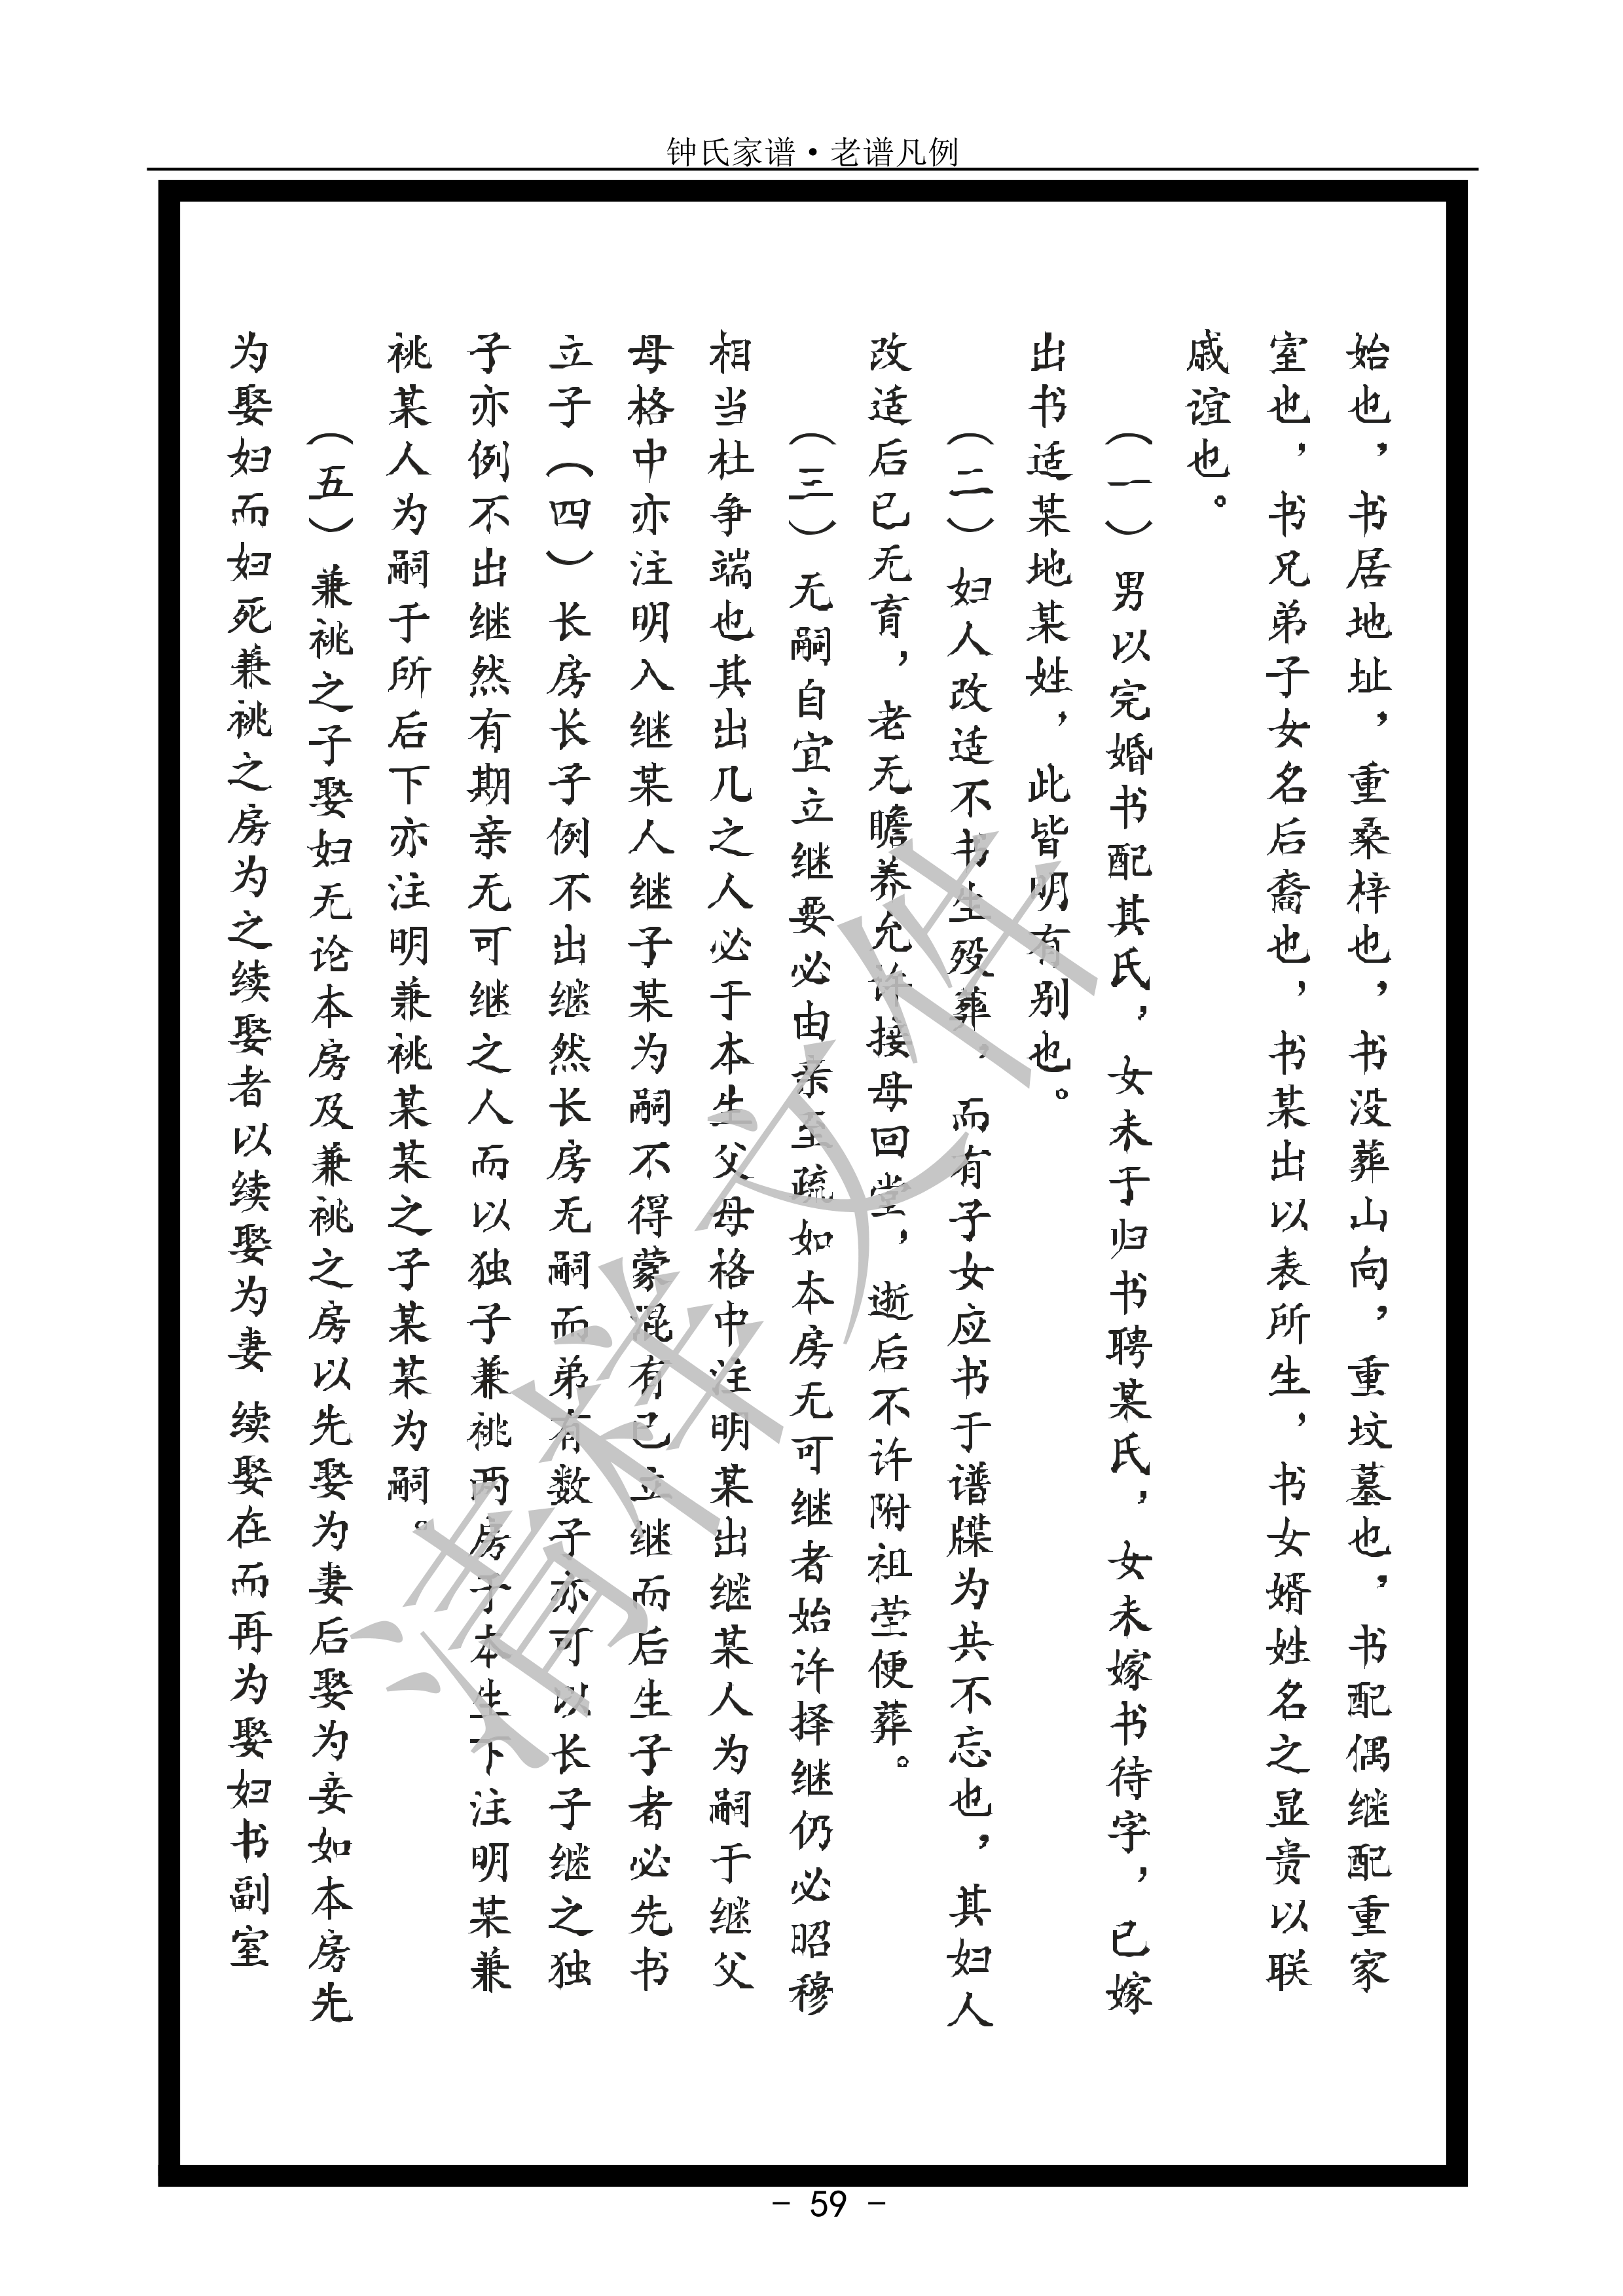 钟氏家谱·老谱凡例
始也，书居地址，重桑梓也，书没葬山向，重坟墓也，书配偶继配重家
室也，书兄弟子女名后裔也，书某出以表所生，书女婿姓名之显贵以联
戚谊也。
（一）男以完婚书配其氏，女未于归书聘某氏，女未嫁书待字，已嫁
出书适某地某姓，此皆明有别也。
（二）妇人改适不书生殁葬，而有子女应书于谱牒为共不忘也，其妇人
改适后已无育，老无瞻养允许接母回堂，逝后不许附祖茔便葬。
（三）无嗣自宜立继要必由亲至疏如本房无可继者始许择继仍必昭穆
相当杜争端也其出几之人必于本生父母格中注明某出继某人为嗣于继父
母格中亦注明入继某人继子某为嗣不得蒙混有已立继而后生子者必先书
立子（四）长房长子例不出继然长房无嗣而弟有数子亦可以长子继之独
子亦例不出继然有期亲无可继之人而以独子兼祧两房子本生下注明某兼
祧某人为嗣于所后下亦注明兼祧某某之子某某为嗣。
（五）兼祧之子娶妇无论本房及兼祧之房以先娶为妻后娶为妾如本房先
为娶妇而妇死兼祧之房为之续娶者以续娶为妻 续娶在而再为娶妇书副室
清样文件
- 59 -